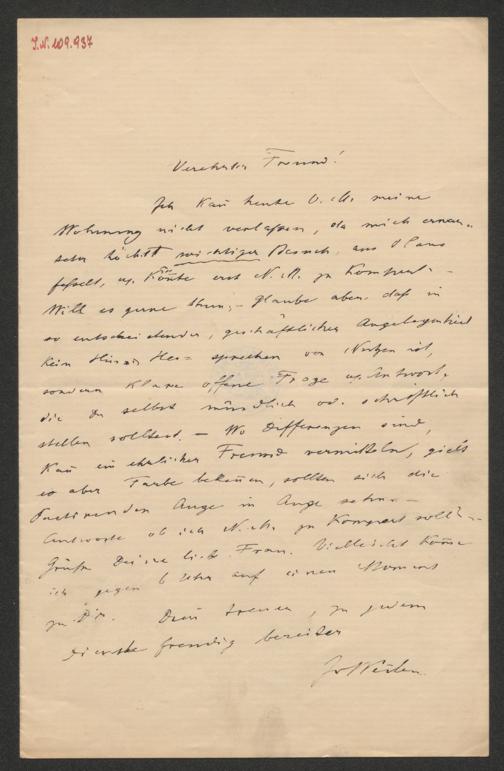 I.N. 109.937
Verehrter Freund!
Ich kan̄ heute V. M. meine
Wohnung nicht verlassen, da mich ein
höchst wichtiger Besuch, aus
fesselt, u. kön̄te erst N. M. zu Kompert. –
Will es gerne thun; – glaube aber, daß in
so entscheidender, geschäftlicher Angelegenheit
kein Hin u. Her = sprechen von Nutzen ist,
sondern klare offene Frage u. Antwort,
die Du selbst mündlich od. schriftlich
stellen solltest. – Wo Differenzen sind,
kan̄ ein ehrlicher Freund vermitteln, gielt
es aber Farbe beken̄en, sollten sich die
Auge in Auge sehen. –
Antworte ob ich N. M. zu Kompert soll? –
Grüße Deine liebe Frau. Vielleicht kom̄e
ich gegen 6 Uhr auf einen Moment
zu Dir. Dein treuer, zu jedem
Dienste freudig bereiter
Jos Weilen